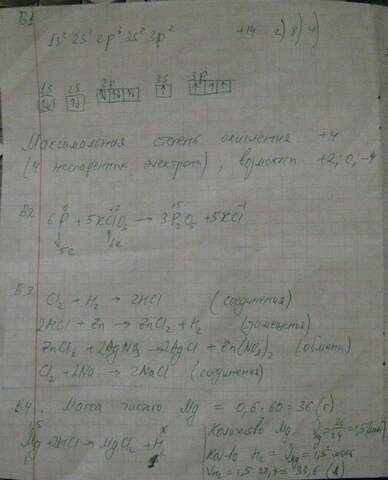 В1
1s² 2s² 2p⁶ 3s² 3p² +14 2) 8) 4)
1s 2s 2p 3s 3p
↑↓ ↑↓ ↑↓ ↑↓ ↑↓ ↑ ↑ ↑ ↑
Максимальная степень окисления +4
(4 неспаренных электрона), возможны +2; 0, -4
В2 6P⁰ + 5KClO₃ → 3P₂⁺⁵O₅ + 5KCl⁻¹
5e 6e
В3
Cl₂ + H₂ → 2HCl (соединения)
2HCl + Zn → ZnCl₂ + H₂ (замещения)
ZnCl₂ + 2AgNO₃ → 2AgCl + Zn(NO₃)₂ (обмена)
Cl₂ + 2Na → 2NaCl (соединения)
В4. Масса чистого Mg = 0,6·60 = 36 (г)
Количество Mg = 36/24 = 1,5 (моль)
1,5 x
Mg + 2HCl → MgCl₂ + H₂
1 1
Кол-во H₂ = Mg = 1,5 моль
V H₂ = 1,5·22,4 = 33,6 (л)